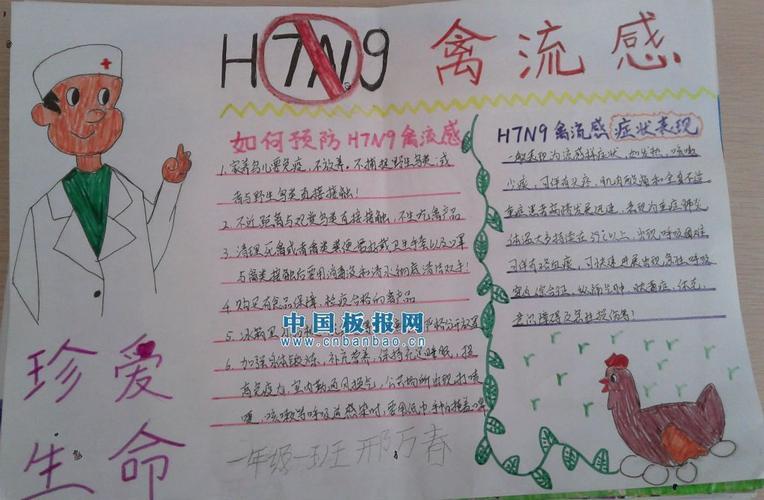 H7N9 禽流感
如何预防H7N9禽流感
1.家养鸟儿要免疫，不放养。不捕捉野生鸟类，或
者与野生鸟类直接接触！
2.不近距离与观赏鸟类直接接触，不生吃禽产品
3.清理死禽或者禽类粪便要戴卫生手套以及口罩
与禽类接触后要用消毒液和清水彻底清洗双手！
4.购买有食品保障、检疫合格的禽产品
5.冰箱里
6.加强体育锻炼，补充营养，保持充足睡眠，提
高免疫力，室内勤通风换气，公共场所出现打喷
嚏，咳嗽等呼吸道感染时，要用纸巾、手帕掩盖口鼻
一年级一班 邢万春
H7N9禽流感症状表现
一般表现为流感样症状，如发热，咳嗽
少痰，可伴有头痛，肌肉酸痛和全身不适
重症患者病情发展迅速，表现为重症肺炎
体温大多持续在39℃以上，出现呼吸困难
可伴有咯血痰，可快速进展出现急性呼吸
窘迫综合征、纵隔气肿、脓毒症、休克、
意识障碍及急性损伤害！
珍爱
生命
中国板报网
www.cnbanbao.cn